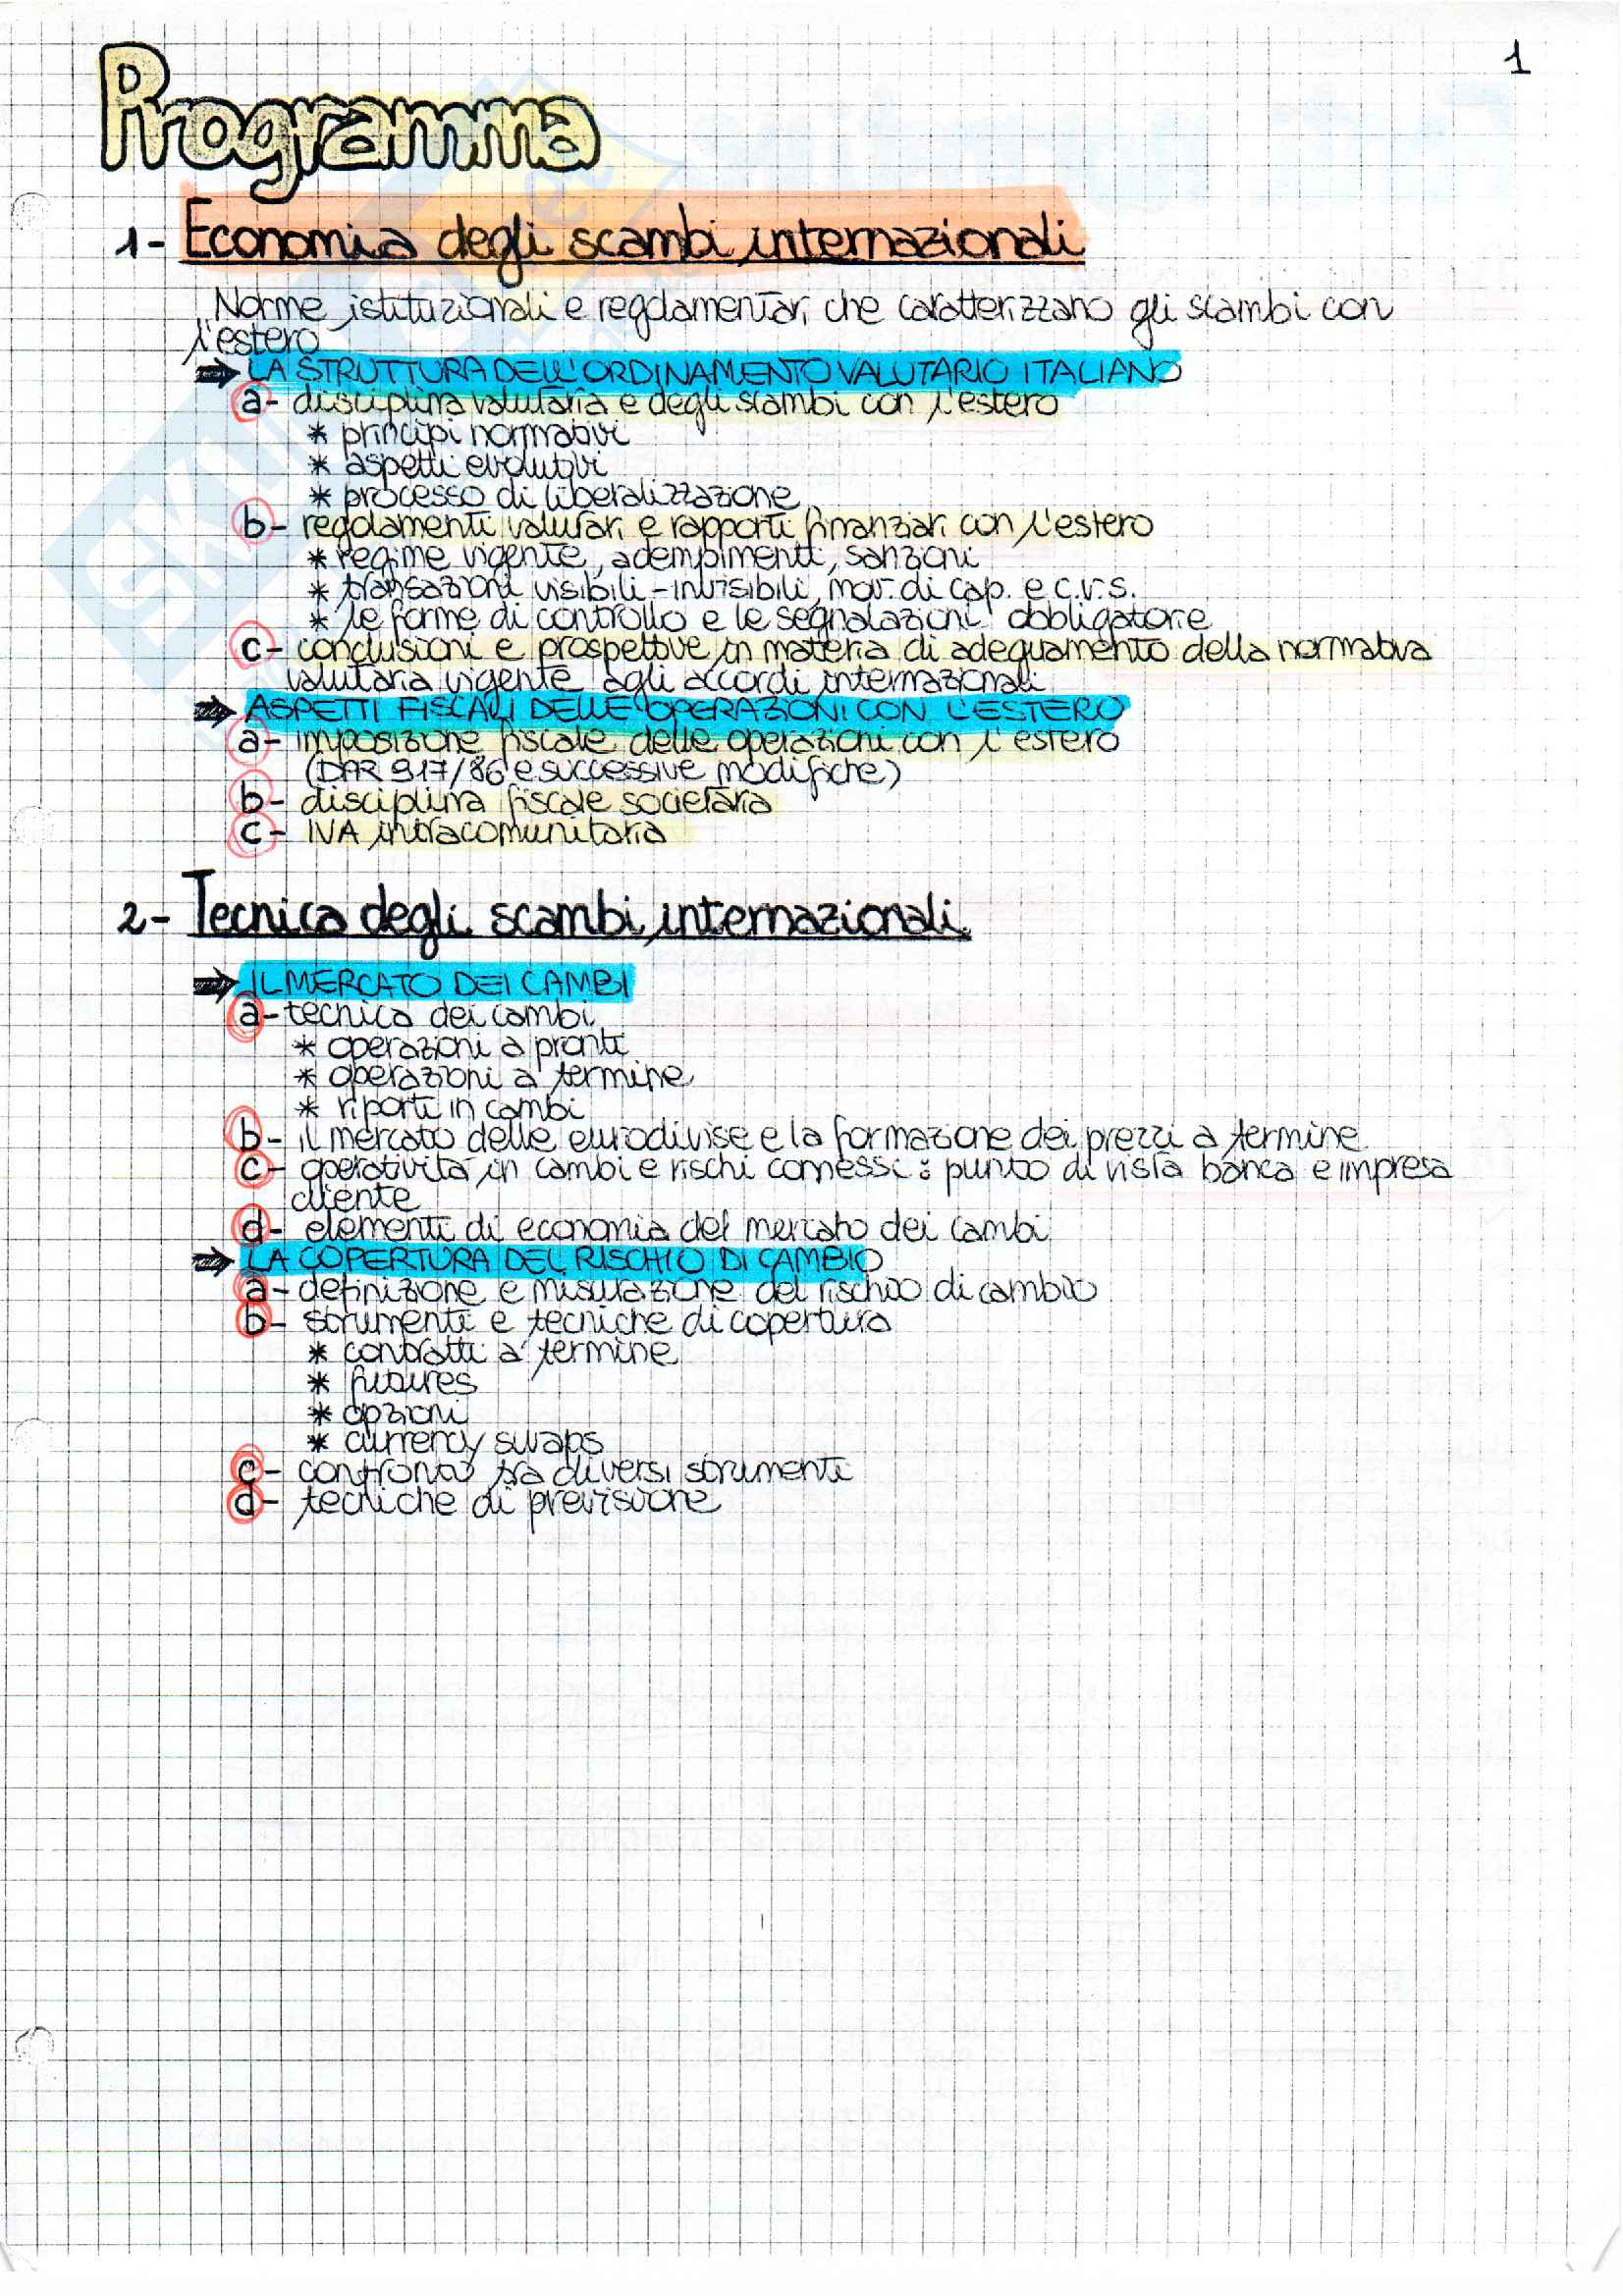 1
Programma
1- Economia degli scambi internazionali
Norme istituzionali e regolamentari che caratterizzano gli scambi con
l'estero
➡ LA STRUTTURA DELL'ORDINAMENTO VALUTARIO ITALIANO
a- disciplina valutaria e degli scambi con l'estero
* principi normativi
* aspetti evolutivi
* processo di liberalizzazione
b- regolamenti valutari e rapporti finanziari con l'estero
* regime vigente, adempimenti, sanzioni
* transazioni visibili-invisibili, mov. di cap. e c.v.s.
* le forme di controllo e le segnalazioni obbligatorie
c- conclusioni e prospettive in materia di adeguamento della normativa
valutaria vigente agli accordi internazionali
➡ ASPETTI FISCALI DELLE OPERAZIONI CON L'ESTERO
a- imposizione fiscale delle operazioni con l'estero
(DPR 917/86 e successive modifiche)
b- disciplina fiscale societaria
c- IVA intracomunitaria
2- Tecnica degli scambi internazionali
➡ IL MERCATO DEI CAMBI
a- tecnica dei cambi
* operazioni a pronti
* operazioni a termine
* riporti in cambi
b- il mercato delle eurodivise e la formazione dei prezzi a termine
c- operatività in cambi e rischi connessi: punto di vista banca e impresa
cliente
d- elementi di economia del mercato dei cambi
➡ LA COPERTURA DEL RISCHIO DI CAMBIO
a- definizione e misurazione del rischio di cambio
b- strumenti e tecniche di copertura
* contratti a termine
* futures
* opzioni
* currency swaps
c- confronto tra diversi strumenti
d- tecniche di previsione